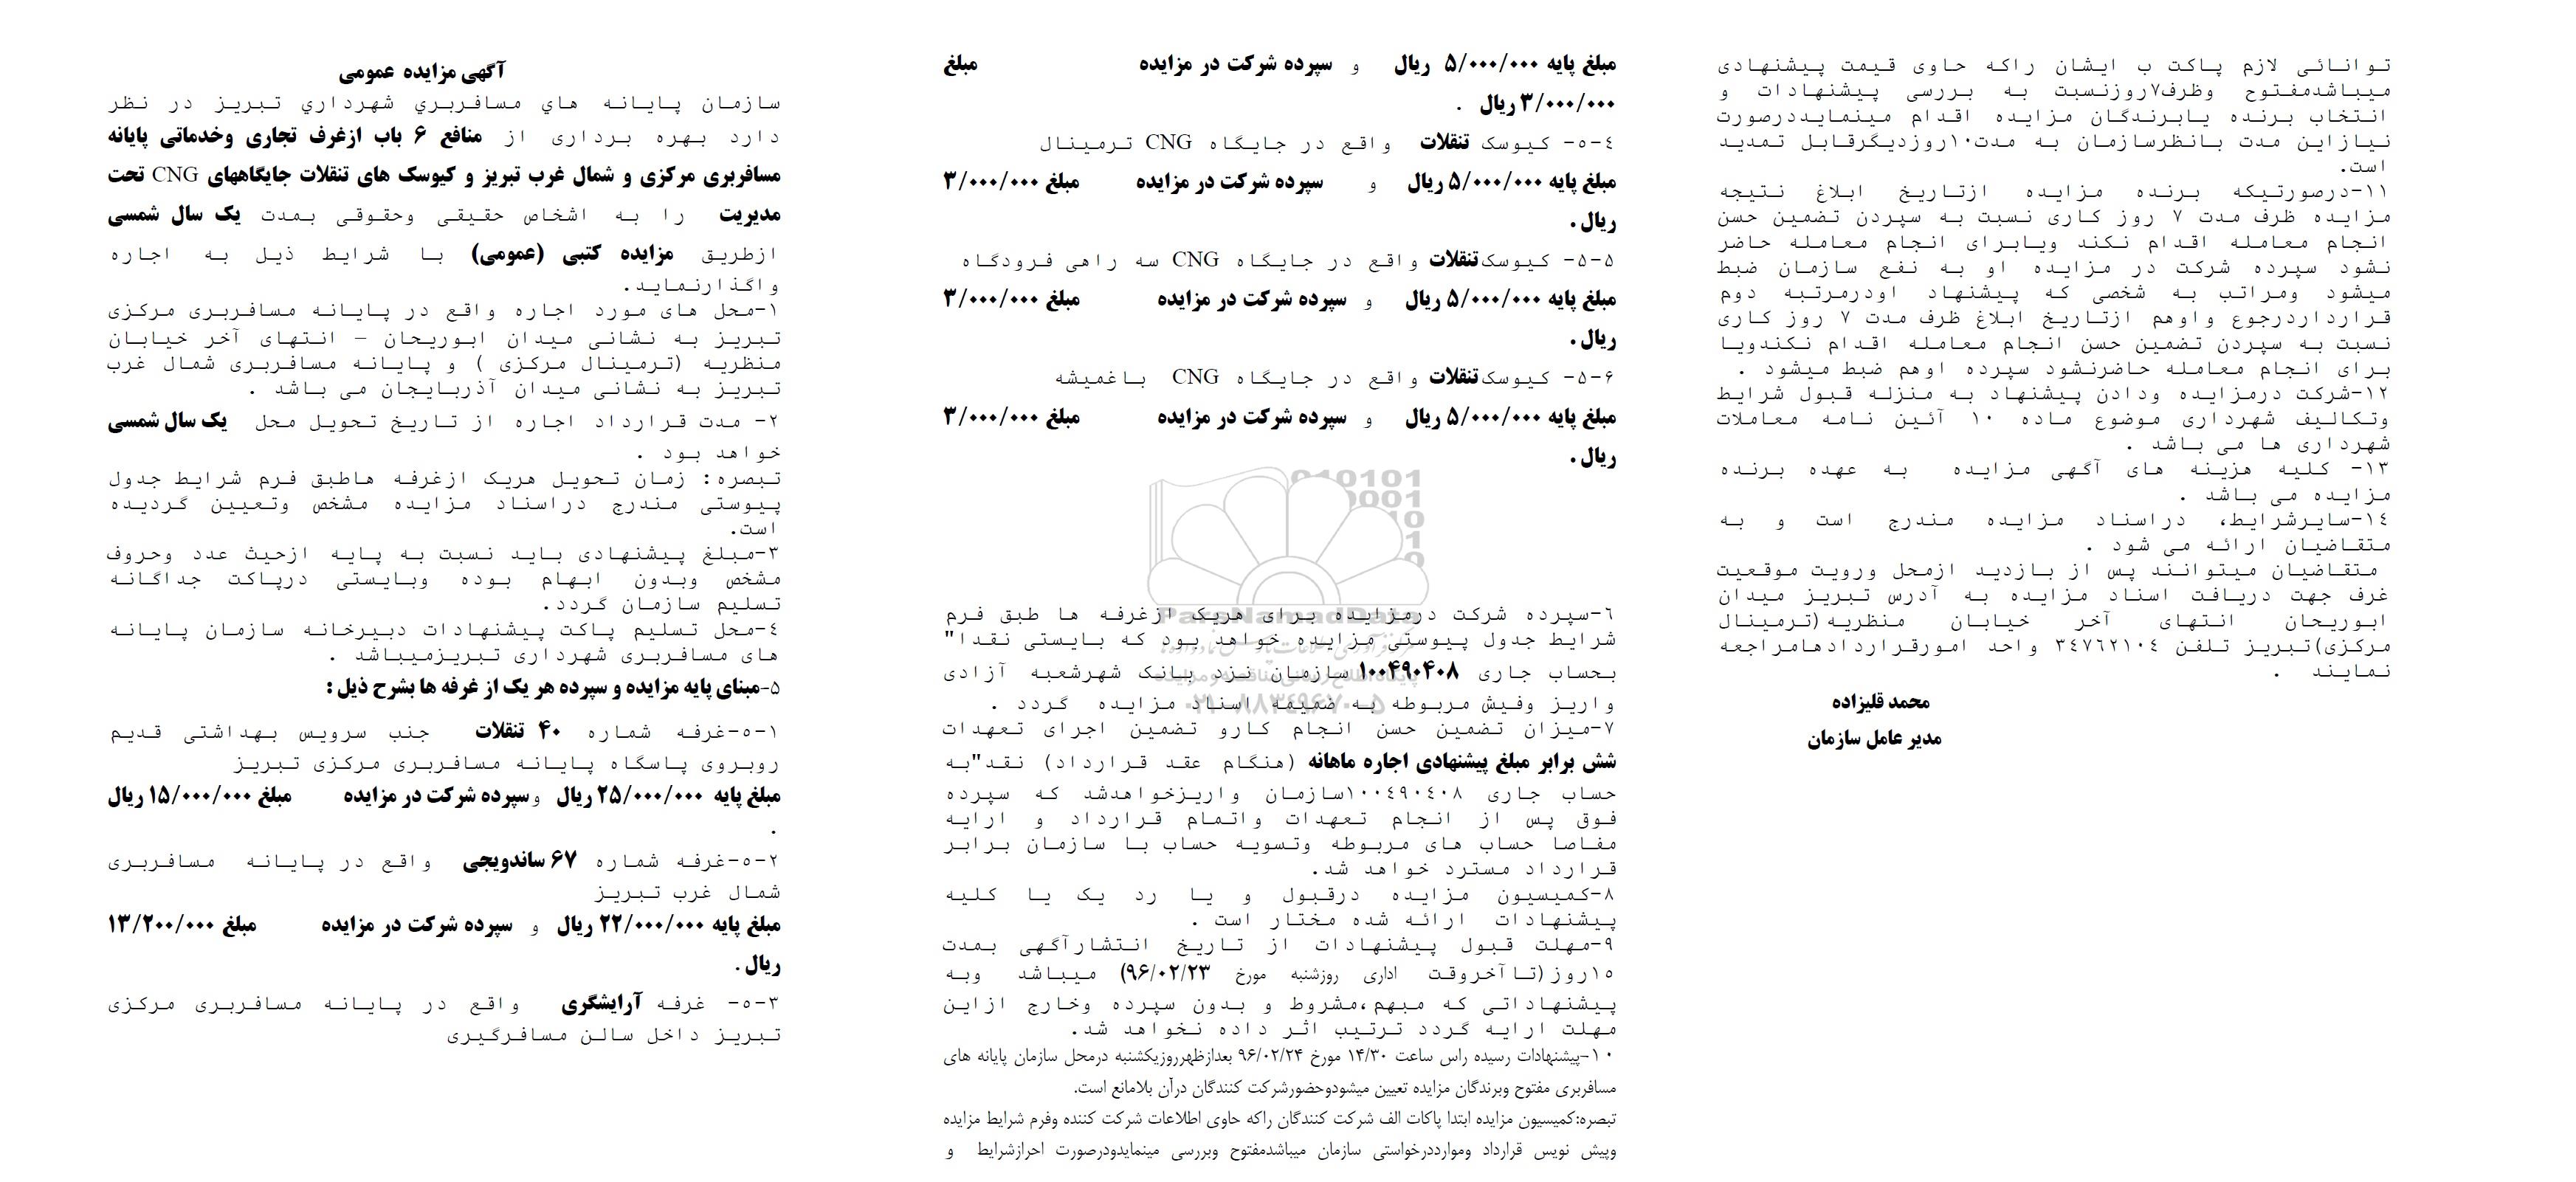 آگهی مزایده عمومی
سازمان پایانه هاي مسافربري شهرداري تبریز در نظر
دارد بهره برداری از منافع ۶ باب ازغرف تجاری وخدماتی پایانه
مسافربری مرکزی و شمال غرب تبریز و کیوسک های تنقلات جایگاههای CNG تحت
مدیریت را به اشخاص حقیقی وحقوقی بمدت یک سال شمسی
ازطریق مزایده کتبی (عمومی) با شرایط ذیل به اجاره
واگذارنماید.
۱-محل های مورد اجاره واقع در پایانه مسافربری مرکزی
تبریز به نشانی میدان ابوریحان – انتهای آخر خیابان
منظریه (ترمینال مرکزی ) و پایانه مسافربری شمال غرب
تبریز به نشانی میدان آذربایجان می باشد .
۲- مدت قرارداد اجاره از تاریخ تحویل محل یک سال شمسی
خواهد بود .
تبصره: زمان تحویل هریک ازغرفه هاطبق فرم شرایط جدول
پیوستی مندرج دراسناد مزایده مشخص وتعیین گردیده
است.
۳-مبلغ پیشنهادی باید نسبت به پایه ازحیث عدد وحروف
مشخص وبدون ابهام بوده وبایستی درپاکت جداگانه
تسلیم سازمان گردد.
٤-محل تسلیم پاکت پیشنهادات دبیرخانه سازمان پایانه
های مسافربری شهرداری تبریزمیباشد .
۵-مبنای پایه مزایده و سپرده هر یک از غرفه ها بشرح ذیل :
۱-۵-غرفه شماره ۴۰ تنقلات جنب سرویس بهداشتی قدیم
روبروی پاسگاه پایانه مسافربری مرکزی تبریز
مبلغ پایه ۲۵/۰۰۰/۰۰۰ ریال و سپرده شرکت در مزایده مبلغ ۱۵/۰۰۰/۰۰۰ ریال
.
۲-۵-غرفه شماره ۶۷ ساندویجی واقع در پایانه مسافربری
شمال غرب تبریز
مبلغ پایه ۲۲/۰۰۰/۰۰۰ ریال و سپرده شرکت در مزایده مبلغ ۱۳/۲۰۰/۰۰۰
ریال .
۳-۵- غرفه آرایشگری واقع در پایانه مسافربری مرکزی
تبریز داخل سالن مسافرگیری
مبلغ پایه ۵/۰۰۰/۰۰۰ ریال و سپرده شرکت در مزایده مبلغ
۳/۰۰۰/۰۰۰ ریال .
٤-۵- کیوسک تنقلات واقع در جایگاه CNG ترمینال
مبلغ پایه ۵/۰۰۰/۰۰۰ ریال و سپرده شرکت در مزایده مبلغ ۳/۰۰۰/۰۰۰
ریال .
۵-۵- کیوسک تنقلات واقع در جایگاه CNG سه راهی فرودگاه
مبلغ پایه ۵/۰۰۰/۰۰۰ ریال و سپرده شرکت در مزایده مبلغ ۳/۰۰۰/۰۰۰
ریال .
۶-۵- کیوسک تنقلات واقع در جایگاه CNG باغمیشه
مبلغ پایه ۵/۰۰۰/۰۰۰ ریال و سپرده شرکت در مزایده مبلغ ۳/۰۰۰/۰۰۰
ریال .
ParsNamadData
۶-سپرده شرکت درمزایده برای هریک ازغرفه ها طبق فرم
شرایط جدول پیوستی مزایده خواهد بود که بایستی نقدا"
بحساب جاری ۱۰۰۴۹۰۴۰۸ سازمان نزد بانک شهرشعبه آزادی
واریز وفیش مربوطه به ضمیمه اسناد مزایده گردد .
۰۲۱-۸۸۳٤۹۶۷۰-۵
۷-میزان تضمین حسن انجام کارو تضمین اجرای تعهدات
شش برابر مبلغ پیشنهادی اجاره ماهانه (هنگام عقد قرارداد) نقد"به
حساب جاری ۱۰۰٤۹۰٤۰۸سازمان واریزخواهدشد که سپرده
فوق پس از انجام تعهدات واتمام قرارداد و ارایه
مفاصا حساب های مربوطه وتسویه حساب با سازمان برابر
قرارداد مسترد خواهد شد.
۸-کمیسیون مزایده درقبول و یا رد یک یا کلیه
پیشنهادات ارائه شده مختار است .
۹-مهلت قبول پیشنهادات از تاریخ انتشارآگهی بمدت
۱۵روز(تاآخروقت اداری روزشنبه مورخ ۹۶/۰۲/۲۳) میباشد وبه
پیشنهاداتی که مبهم،مشروط و بدون سپرده وخارج ازاین
مهلت ارایه گردد ترتیب اثر داده نخواهد شد.
۱۰-پیشنهادات رسیده راس ساعت ۱۴/۳۰ مورخ ۹۶/۰۲/۲۴ بعدازظهرروزیکشنبه درمحل سازمان پایانه های
مسافربری مفتوح وبرندگان مزایده تعیین میشودوحضورشرکت کنندگان درآن بلامانع است.
تبصره:کمیسیون مزایده ابتدا پاکات الف شرکت کنندگان راکه حاوی اطلاعات شرکت کننده وفرم شرایط مزایده
وپیش نویس قرارداد ومواردرخواستی سازمان میباشدمفتوح وبررسی مینمایدودرصورت احرازشرایط و
توانائی لازم پاکت ب ایشان راکه حاوی قیمت پیشنهادی
میباشدمفتوح وظرف۷روزنسبت به بررسی پیشنهادات و
انتخاب برنده یابرندگان مزایده اقدام مینمایددرصورت
نیازاین مدت بانظرسازمان به مدت۱۰روزدیگرقابل تمدید
است.
۱۱-درصورتیکه برنده مزایده ازتاریخ ابلاغ نتیجه
مزایده ظرف مدت ۷ روز کاری نسبت به سپردن تضمین حسن
انجام معامله اقدام نکند ویابرای انجام معامله حاضر
نشود سپرده شرکت در مزایده او به نفع سازمان ضبط
میشود ومراتب به شخصی که پیشنهاد اودرمرتبه دوم
قرارداردرجوع واوهم ازتاریخ ابلاغ ظرف مدت ۷ روز کاری
نسبت به سپردن تضمین حسن انجام معامله اقدام نکندویا
برای انجام معامله حاضرنشود سپرده اوهم ضبط میشود .
۱۲-شرکت درمزایده ودادن پیشنهاد به منزله قبول شرایط
وتکالیف شهرداری موضوع ماده ۱۰ آئین نامه معاملات
شهرداری ها می باشد .
۱۳- کلیه هزینه های آگهی مزایده به عهده برنده
مزایده می باشد .
۱٤-سایرشرایط، دراسناد مزایده مندرج است و به
متقاضیان ارائه می شود .
متقاضیان میتوانند پس از بازدید ازمحل ورویت موقعیت
غرف جهت دریافت اسناد مزایده به آدرس تبریز میدان
ابوریحان انتهای آخر خیابان منظریه(ترمینال
مرکزی)تبریز تلفن ۳٤۷۶۲۱۰٤ واحد امورقراردادهامراجعه
نمایند .
محمد قلیزاده
مدیر عامل سازمان